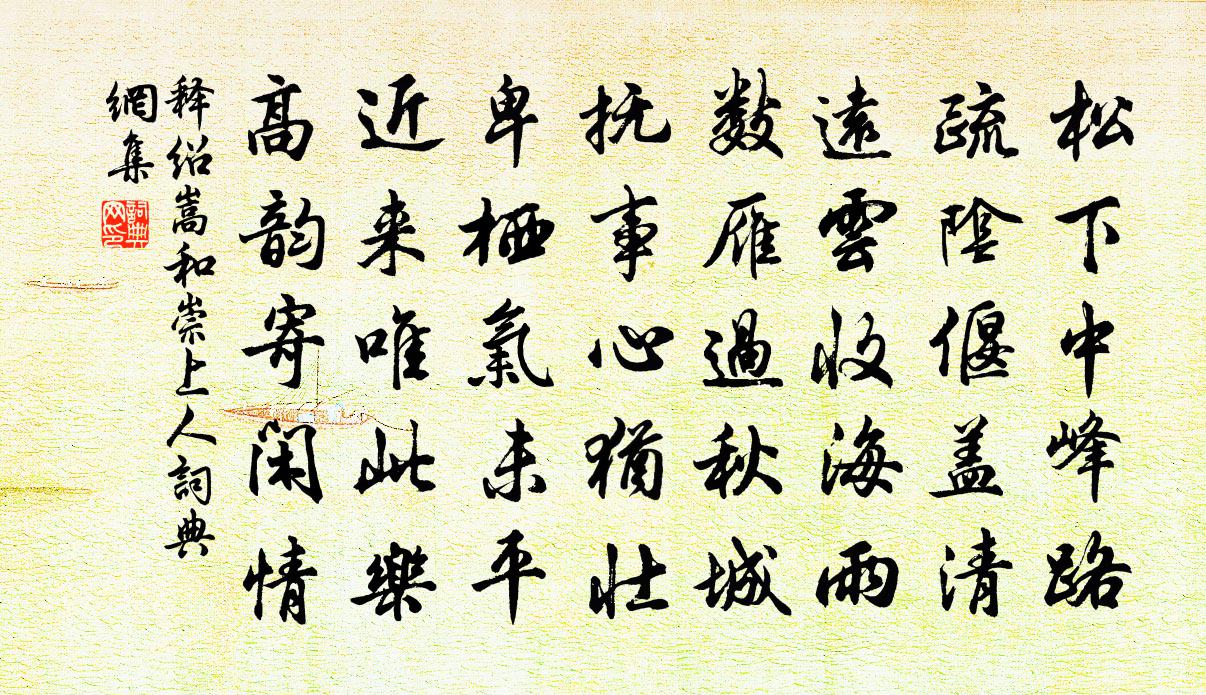 松下中峰路
疏陰偃盖清
遠雲收海雨
數雁過秋城
抚事心猶壮
卑栖氣未平
近来唯此樂
高韵寄闲情
释绍嵩和崇上人詞典
網集
詞典
网印